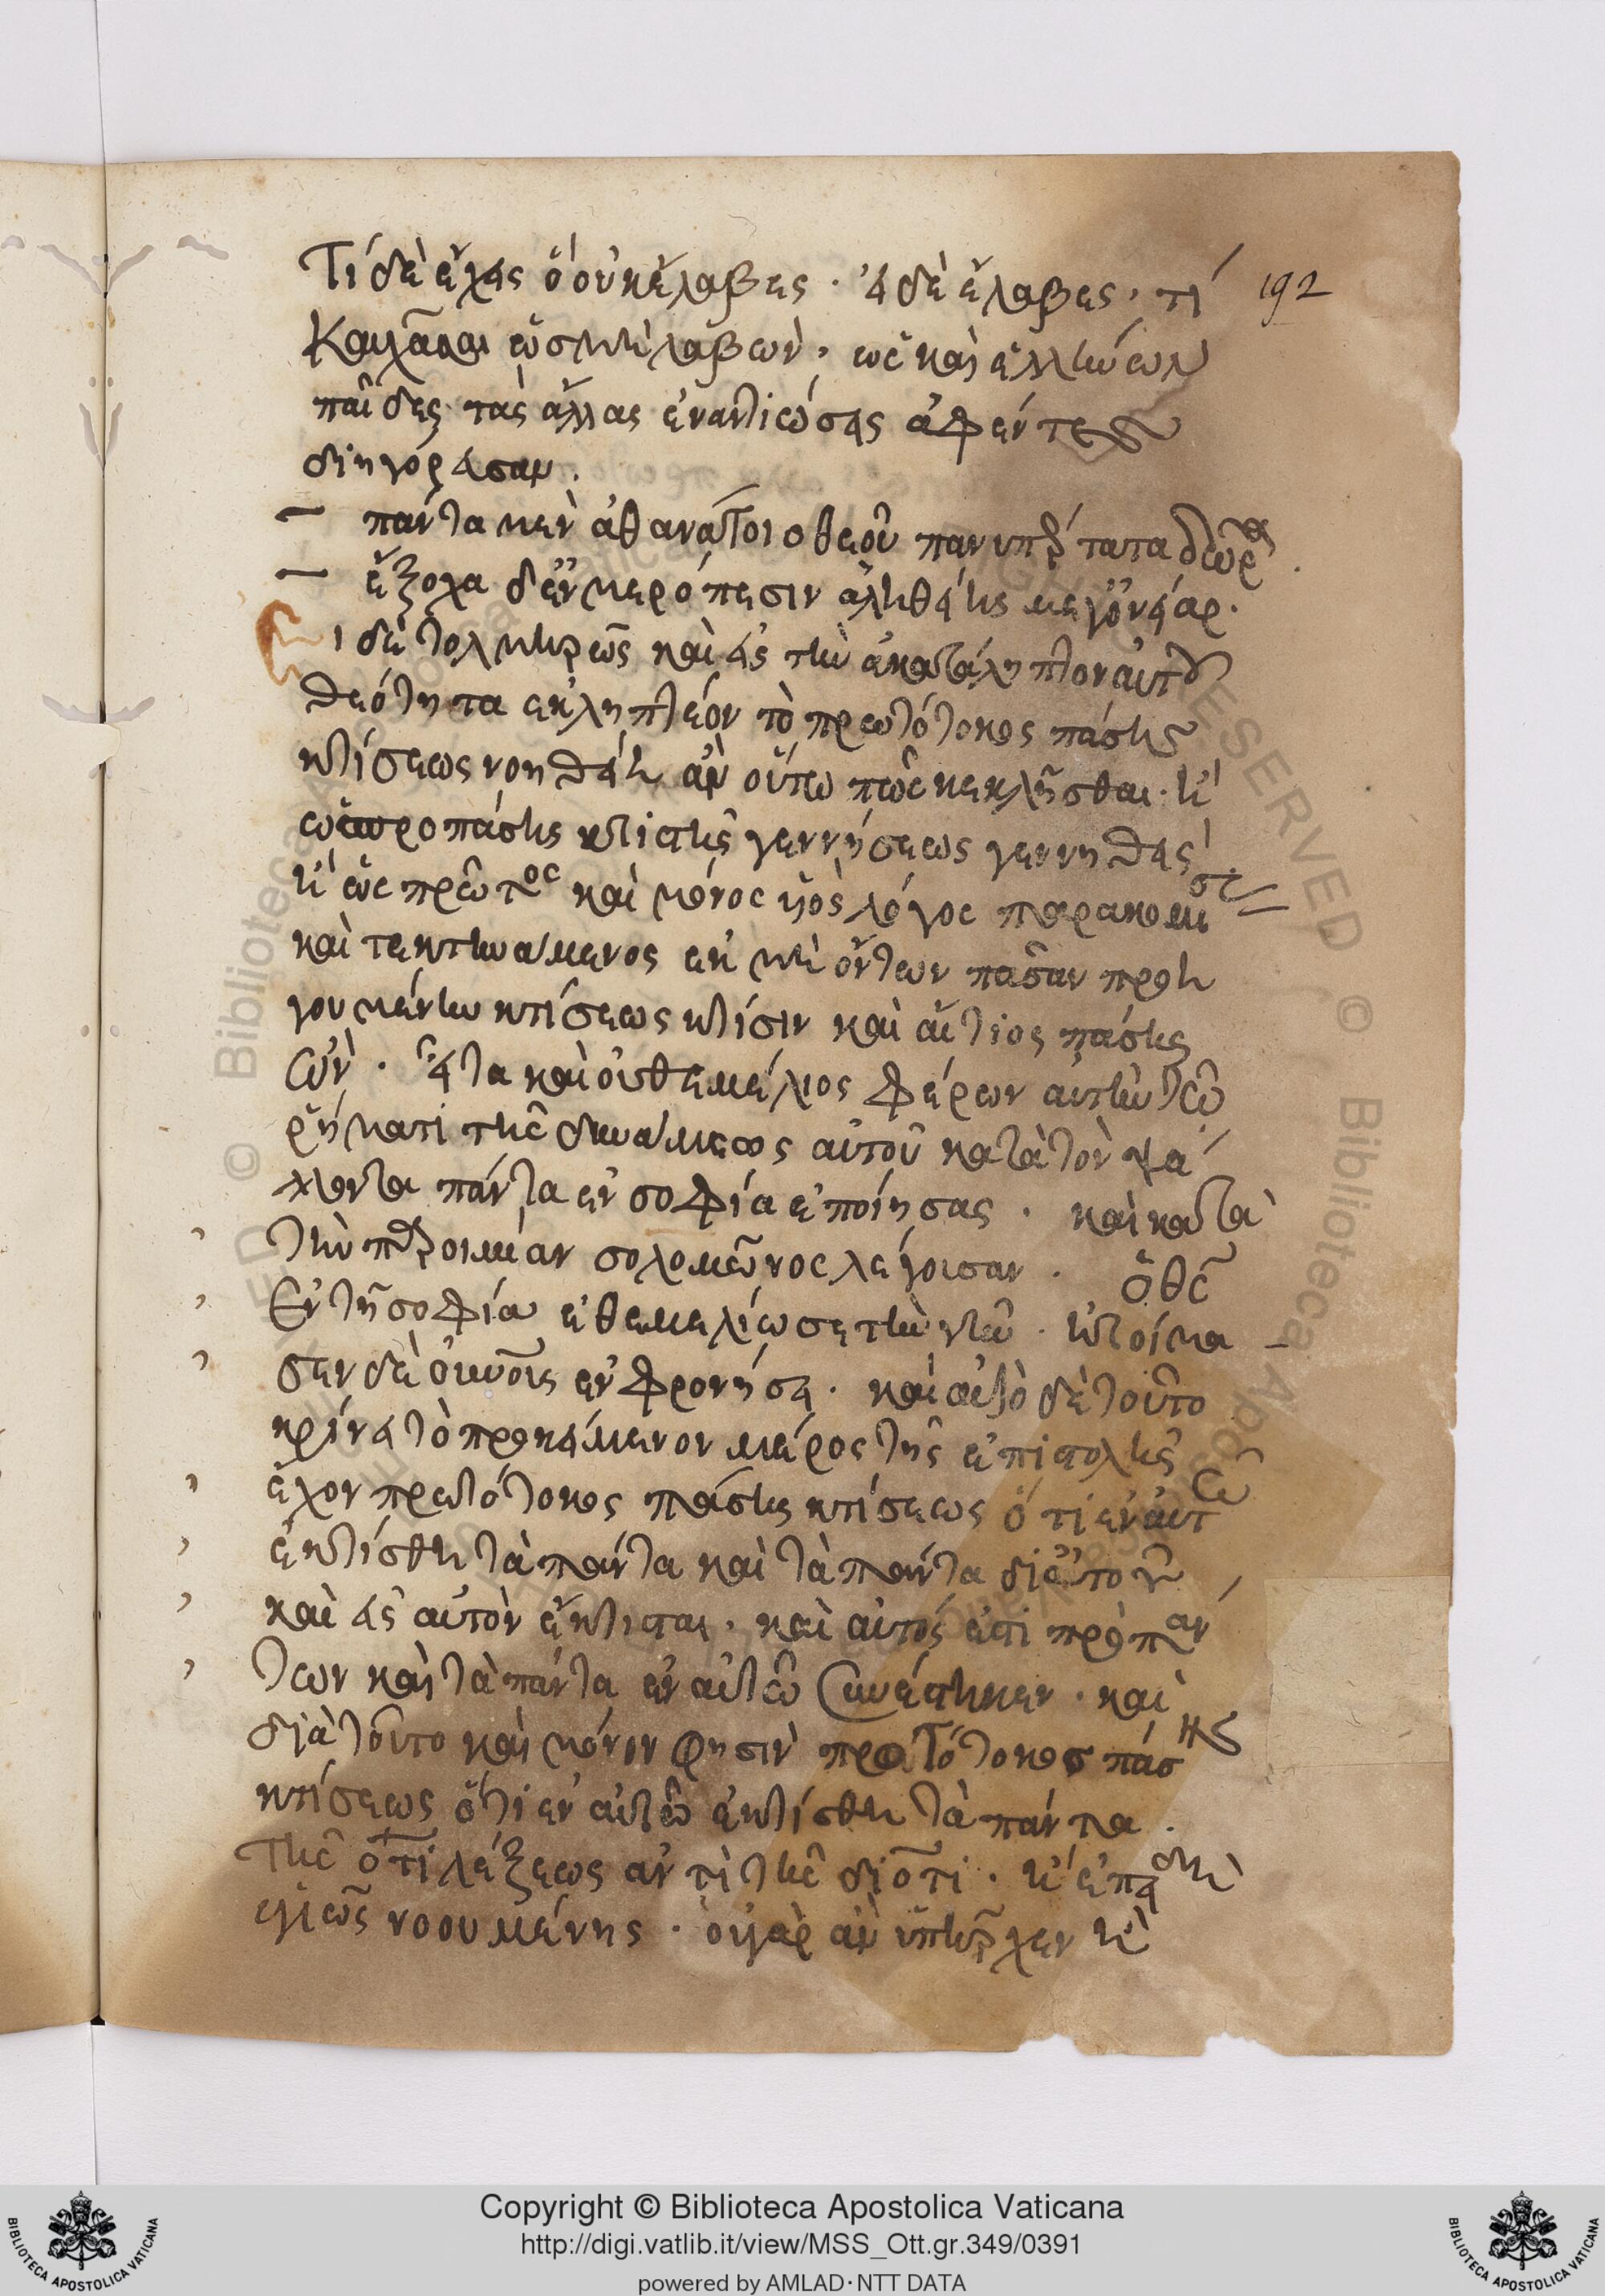 Τί δὲ ἔχεις ὃ οὐκ ἔλαβες· εἰ δὲ ἔλαβες, τί
192
καυχᾶσαι ὡς μὴ λαβών, ὡς καὶ ἑλλήνων
παῖδες τὰς ἄλλας ἐναντιώσεις ἀφέντες
διηγόρευσαν.
πάντα μὲν ἀθανάτοιο θεοῦ πανυπέρτατα δῶρα.
ἔξοχα δ' ἐν μερόπεσιν ἀληθείης μέγ' ὄνειαρ.
Εἰ δὲ τολμηρῶς καὶ εἰς τὴν ἀκατάληπτον αὐτοῦ
θεότητα ἐκληπτέον τὸ πρωτότοκος πάσης
κτίσεως νοηθείη ἂν οὕτω πως κεκλῆσθαι· ἢ
ὡς πρὸ πάσης κτιστῆς γεννήσεως γεννηθείς
ἢ ὡς πρῶτος καὶ μόνος υἱὸς λόγος παρακομι
καὶ τεκτηνάμενος ἐκ μὴ ὄντων πᾶσαν προη
γουμένην κτίσεως κτίσιν καὶ αἴτιος πάσης
ὤν· εἶτα καὶ ὡς θεμέλιος φέρων αὐτὴν τῶ
ῥήματι τῆς δυνάμεως αὐτοῦ κατὰ τὸν ψά
λλοντα πάντα ἐν σοφία ἐποίησας. καὶ κατὰ
τὴν παροιμίαν σολομῶνος λέγουσαν. ὁ θεὸς
ἐν τῆ σοφία ἐθεμελίωσε τὴν γῆν. ἡτοίμα
σεν δὲ οὐρανοὺς ἐν φρονήσει. καὶ αὐτὸ δὲ τοῦτο
κρίνει τὸ προκείμενον μέρος τῆς ἐπιστολῆς
ἔχον πρωτότοκος πάσης κτίσεως ὅτι ἐν αὐτῶ
ἐκτίσθη τὰ πάντα καὶ τὰ πάντα δι' αὐτοῦ
καὶ εἰς αὐτὸν ἔκτισται. καὶ αὐτός ἐστι πρὸ πάν
των καὶ τὰ πάντα ἐν αὐτῶ συνέστηκεν. καὶ
διὰ τοῦτο καὶ μόνον φησὶν πρωτότοκος πάσης
κτίσεως ὅτι ἐν αὐτῶ ἐκτίσθη τὰ πάντα.
τῆς ὅτι λέξεως ἀντὶ τῆς διότι. ἢ ἐπειδὴ
νοουμένης. οὐ γὰρ ἂν ὑπῆρχεν ἢ
Copyright © Biblioteca Apostolica Vaticana
http://digi.vatlib.it/view/MSS_Ott.gr.349/0391
powered by AMLAD·NTT DATA